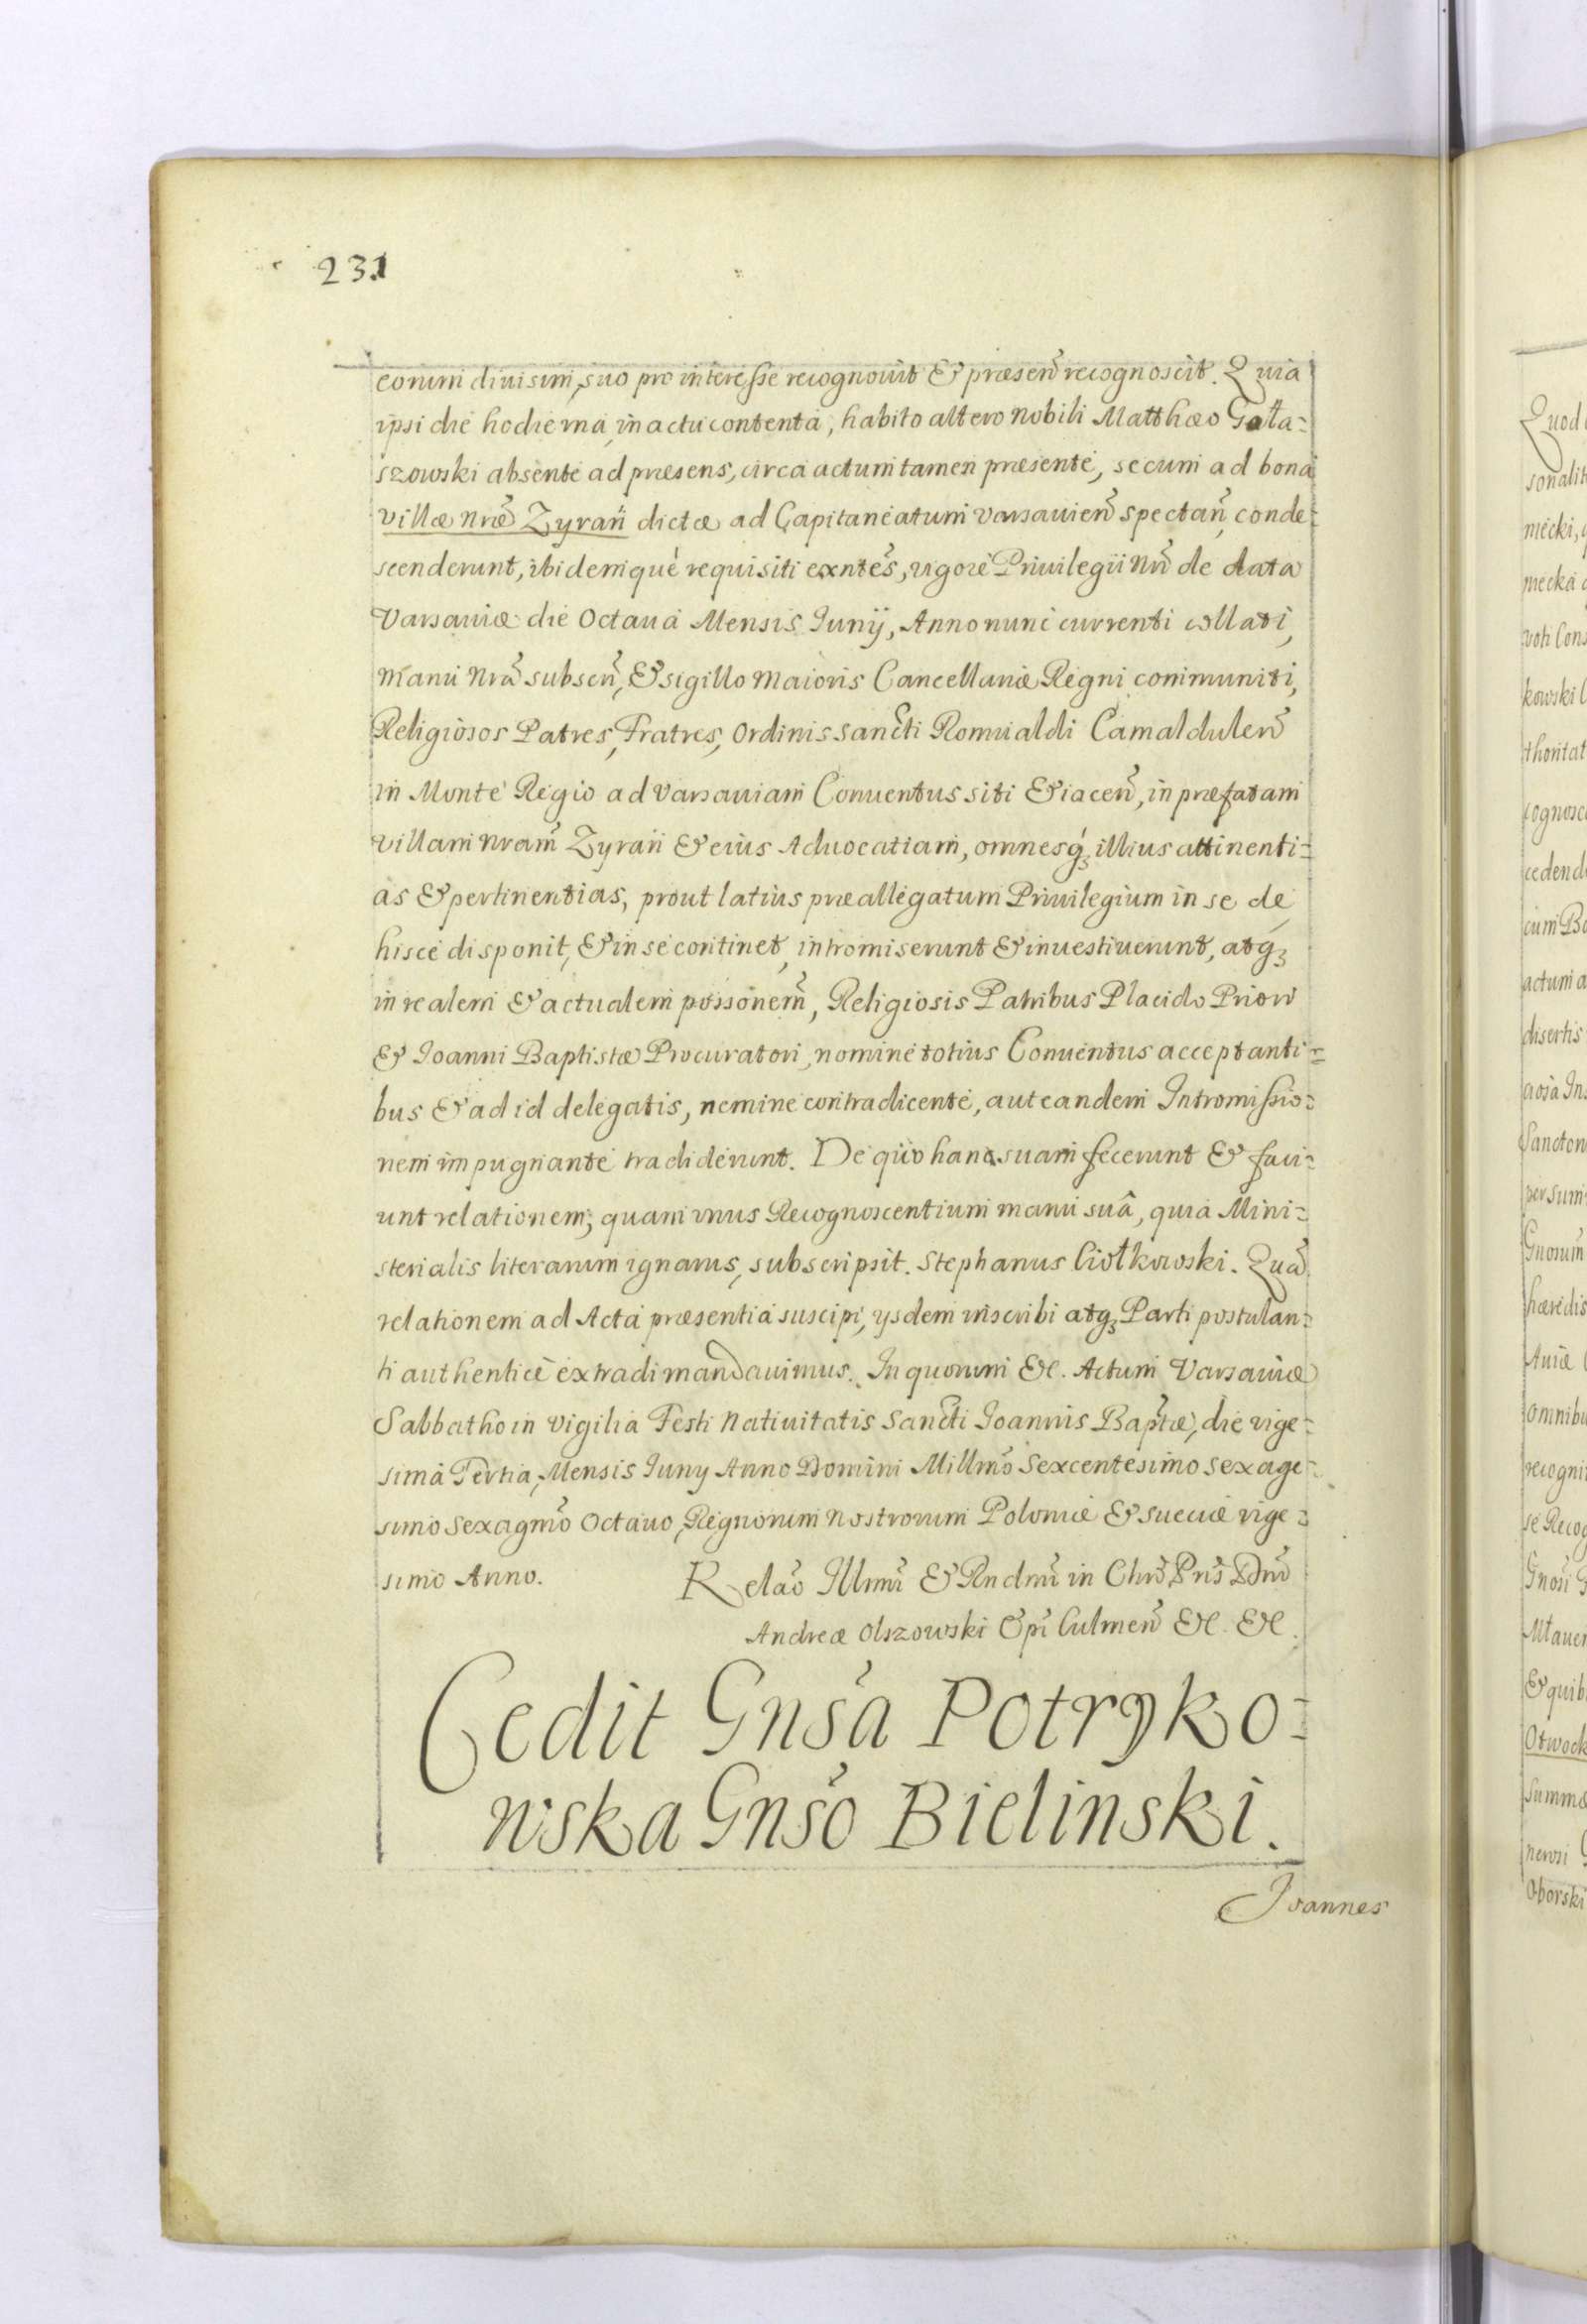 231
eorum diuisim, suo pro interesse recognouit & præsen̄ recognoscit. Quia
ipsi die hodierna, in actu contenta, habito altero nobili Matthæo Gała-
szowski absente ad præsens, circa actum tamen præsente, secum ad bona
villæ nrǣ Zyrań dictæ ad Capitaneatum varsauien̄ spectan̄, conde-
scenderunt, ibidemque requisiti exntēs, vigore Priuilegii nrī de data
Varsauiæ die Octaua Mensis Iunij, Anno nunc currenti collati,
manu nrā subscr̄, & sigillo maioris Cancellariæ Regni communiti,
Religiosos Patres, Fratres, Ordinis sancti Romualdi Camaldulen̄
in Monte Regio ad varsauiam Conuentus siti & iacen̄, in præfatam
villam nram̄ Zyrań & eius Aduocatiam, omnesq́ꝫ illius attinenti-
as & pertinentias, prout latius præallegatum Priuilegium in se de
hisce disponit, & in se continet, intromiserunt & inuestiuerunt, atqꝫ
in realem & actualem possonem̄, Religiosis Patribus Placido Priori
& Ioanni Baptistæ Procuratori, nomine totius Conuentus acceptanti-
bus & ad id delegatis, nemine contradicente, aut eandem Intromissio-
nem impugnante tradiderunt. De quo hanc suam fecerunt & faci-
unt relationem; quam vnus Recognoscentium manu suâ, quia Mini-
sterialis literarum ignarus, subscripsit. Stephanus Ciołkowski. Quā
relationem ad Acta præsentia suscipi, ysdem inscribi atqꝫ Parti postulan-
ti authenticè extradi mandauimus. In quorum &c. Actum Varsauiæ
Sabbatho in vigilia Festi Natiuitatis Sancti Ioannis Bapt̄æ, die vige-
sima Tertia, Mensis Iuny Anno Domini Millmō Sexcentesimo sexage-
simo sexagmō Octauo, Regnorum nostrorum Poloniæ & sueciæ vige-
simo Anno.
Relaō Illmī & Rndmī in Chrō Prīs Dnī
Andreæ Olszowski Epī Culmen̄ &c. &c.
Cedit Gnsā Potryko-
wska Gnsō Bielinski.
Joannes
Quod
sonalit
niecki,
necka
voti Cons
kowski
thoritat
cognosc
cedend
cum Bo
actum a
disertis
acia In
Sanctor
per sum
Gnorum̄
hæredis
Auiæ
omnibu
recogni
se Recog
Gnosī
Młauen
& quib
Otwock
Summæ
nerosi
Oborski